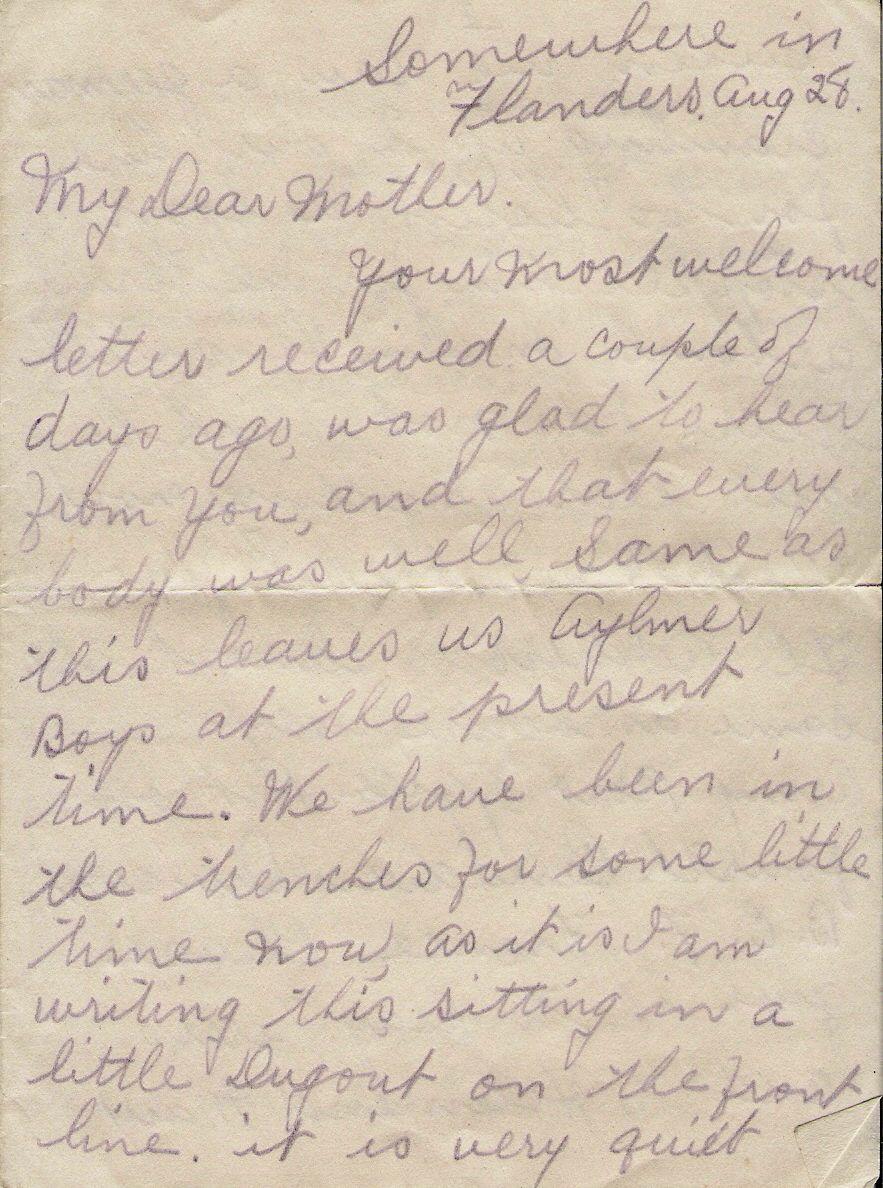 Somewhere in
Flanders. Aug 28.
My Dear Mother.
Your most welcome
letter received a couple of
days ago, was glad to hear
from you, and that every
body was well, Same as
this leaves us Aylmer
Boys at the present
time. We have been in
the trenches for some little
time now, as it is I am
writing this sitting in a
little Dugout on the front
line. it is very quiet